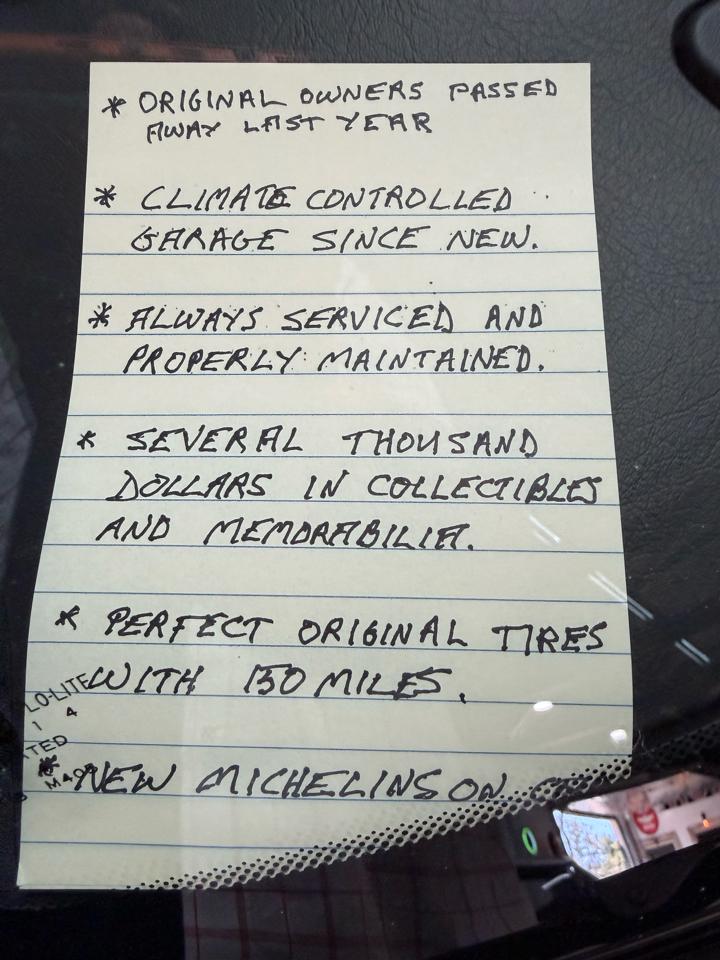 * ORIGINAL OWNERS PASSED
AWAY LAST YEAR
* CLIMATE CONTROLLED
GARAGE SINCE NEW.
* ALWAYS SERVICED AND
PROPERLY MAINTAINED.
* SEVERAL THOUSAND
DOLLARS IN COLLECTIBLES
AND MEMORABILIA.
* PERFECT ORIGINAL TIRES
WITH 150 MILES.
LO-LITE
1 4
* NEW MICHELINS ON